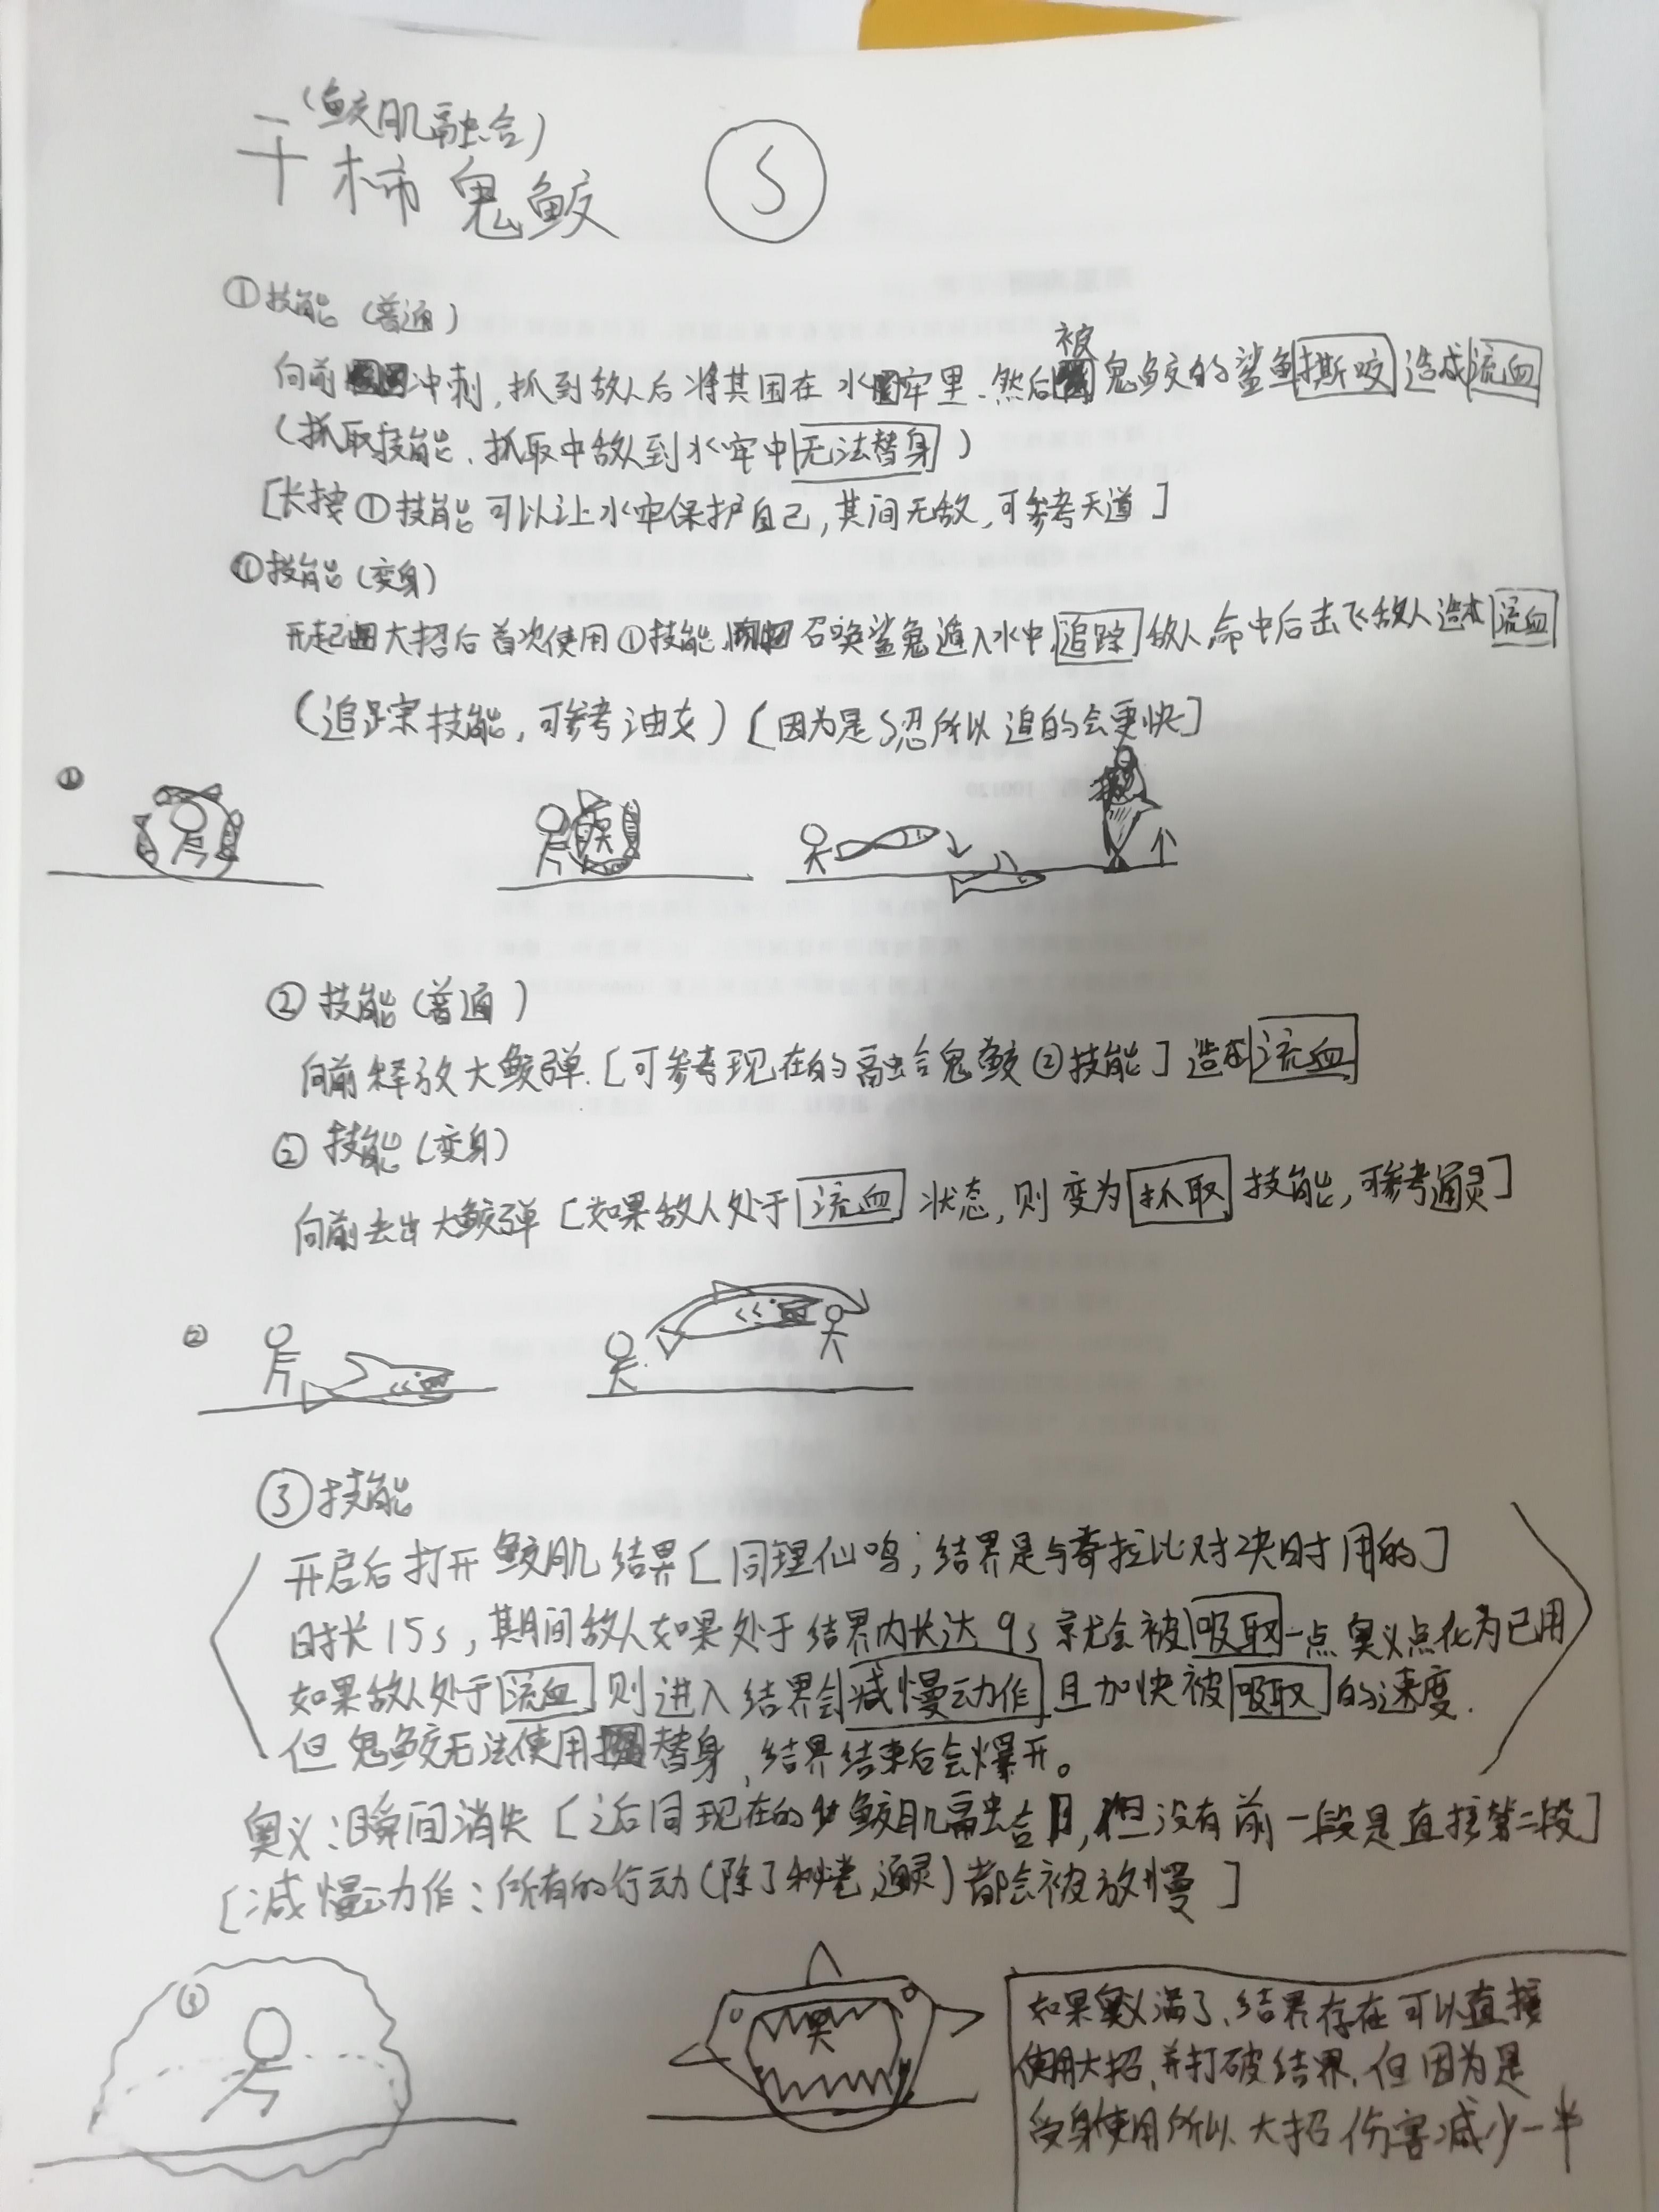 (鲛肌融合)
干柿鬼鲛 S
①技能(普通)
向前冲刺,抓到敌人后将其困在水牢里.然后被鬼鲛的鲨鱼撕咬造成流血
(抓取技能.抓取中敌人到水牢中无法替身)
[长按①技能可以让水牢保护自己,其间无敌,可参考天道]
①技能(变身)
开起大招后首次使用①技能,召唤鲨鬼遁入水中追踪敌人,命中后击飞敌人造成流血
(追踪技能,可参考油女)[因为是S忍所以追的会更快]
①
②技能(普通)
向前释放大鲛弹.[可参考现在的融合鬼鲛②技能]造成流血
②技能(变身)
向前丢出大鲛弹[如果敌人处于流血状态,则变为抓取技能,可参考通灵]
②
③技能
开启后打开鲛肌结界[同理仙鸣;结界是与奇拉比对决时用的]
时长15s,期间敌人如果处于结界内长达9s就会被吸取一点奥义点化为己用
如果敌人处于流血则进入结界会减慢动作且加快被吸取的速度.
但鬼鲛无法使用替身,结界结束后会爆开。
奥义:瞬间消失[之后同现在的鲛肌融合,但没有前一段是直接第二段]
[减慢动作:所有的行动(除了秘卷,通灵)都会被放慢]
③
奥
如果奥义满了,结界存在可以直接
使用大招,并打破结界,但因为是
受身使用所以大招伤害减少一半